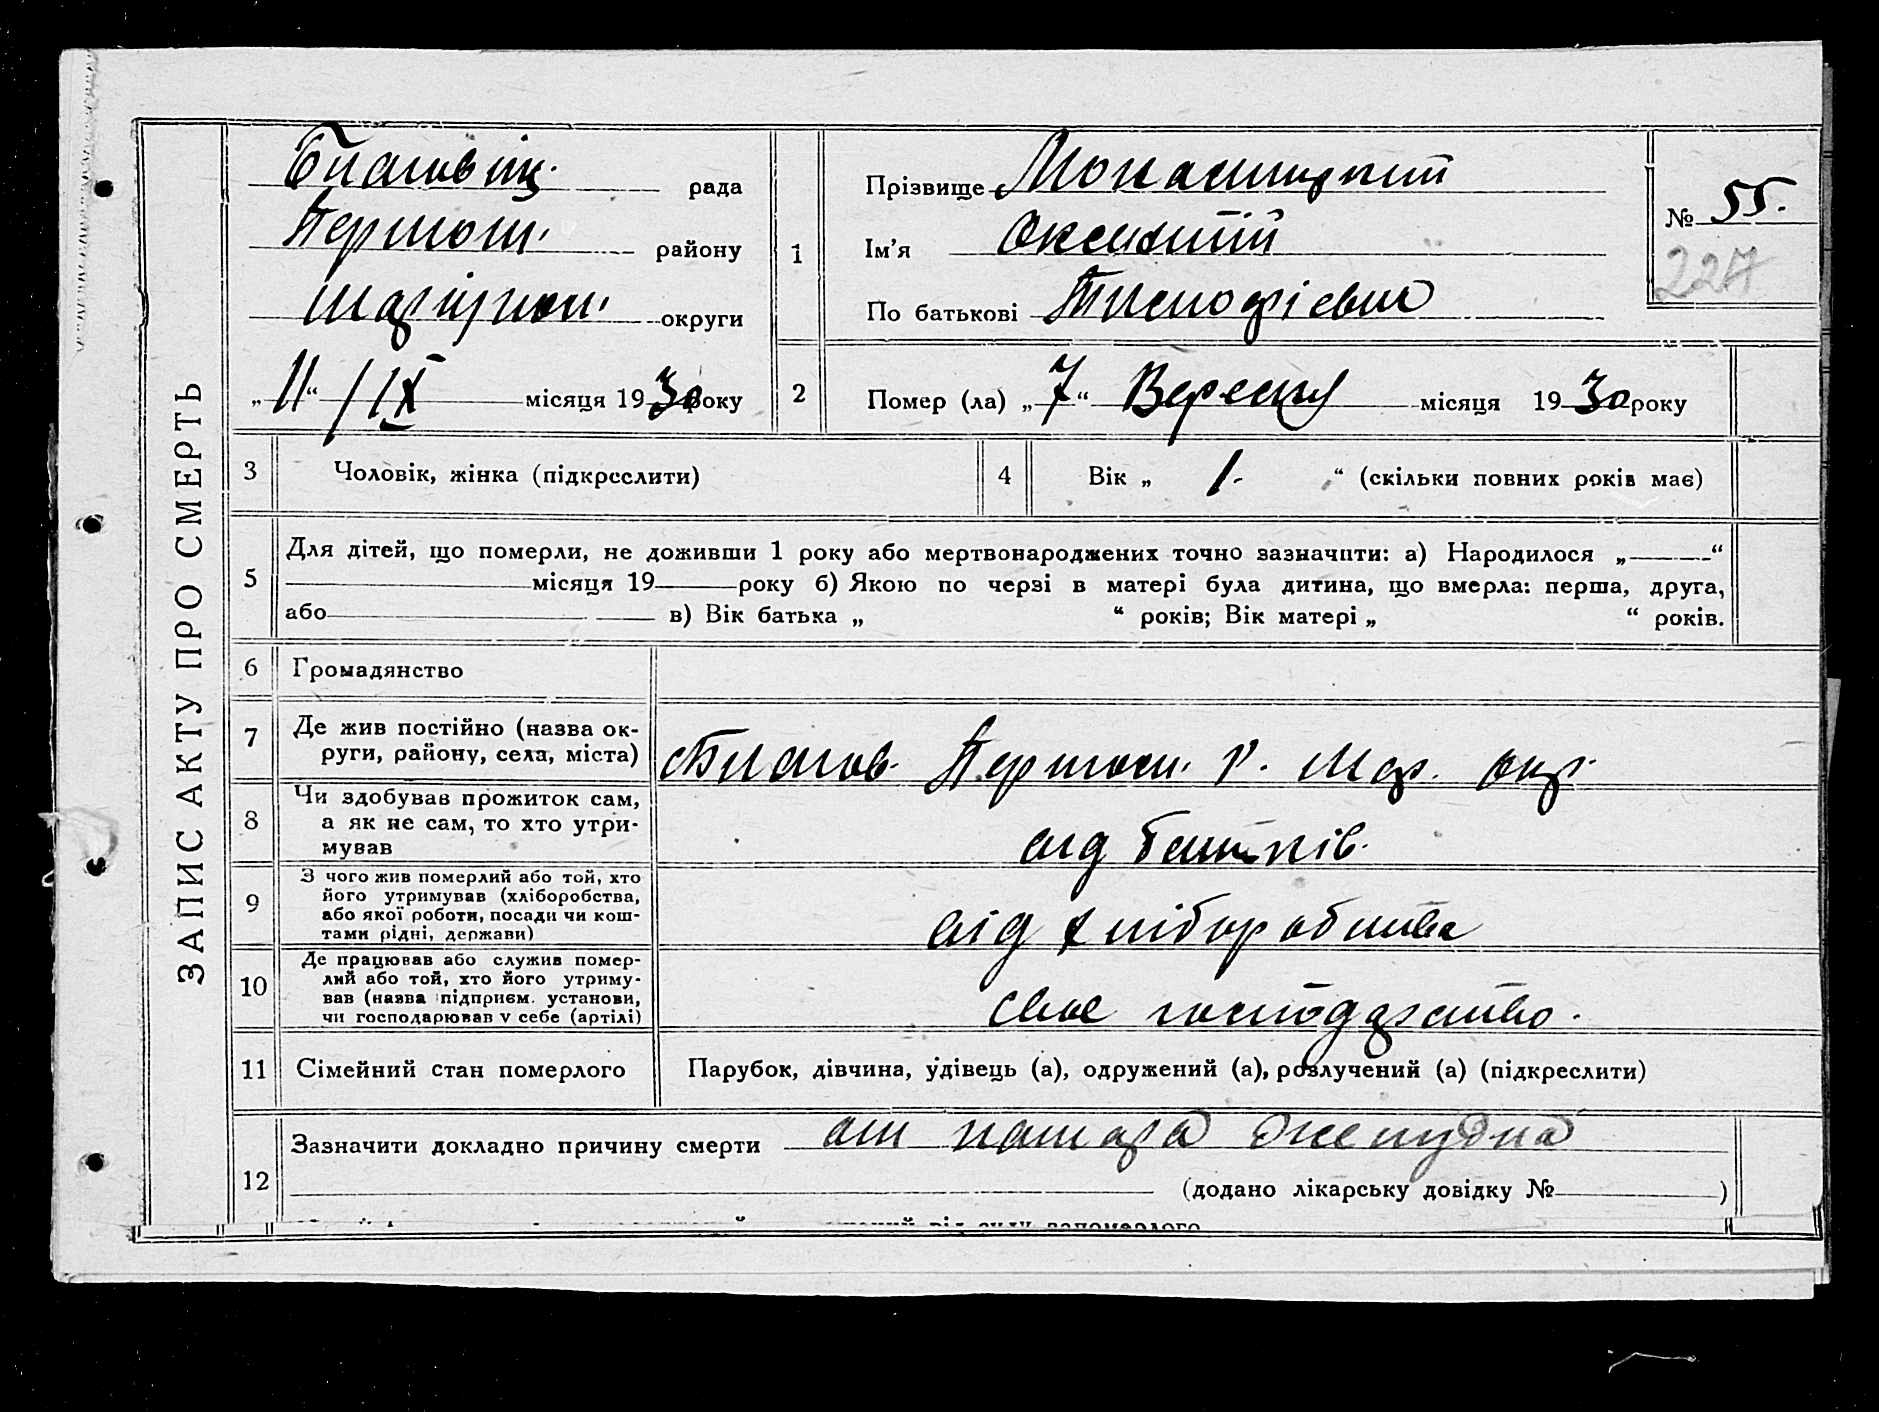 ЗАПИС АКТУ ПРО СМЕРТЬ
рада
району
округи
„11“ /IX місяця 1930 року
1
Прізвище
Ім’я
По батькові
№ 55.
227
2
Помер (ла) „7“ Вересня місяця 1930 року
3
Чоловік, жінка (підкреслити)
4
Вік „ 1. “ (скільки повних років має)
5
Для дітей, що померли, не доживши 1 року або мертвонароджених точно зазначити: а) Народилося „ “
місяця 19 року б) Якою по черзі в матері була дитина, що вмерла: перша, друга,
або в) Вік батька „ “ років; Вік матері „ “ років.
6
Громадянство
7
Де жив постійно (назва ок-
руги, району, села, міста)
окр.
8
Чи здобував прожиток сам,
а як не сам, то хто утри-
мував
від батьків.
9
З чого жив померлий або той, хто
його утримував (хліборобства,
або якої роботи, посади чи кош-
тами рідні, держави)
від хліборобства
10
Де працював або служив помер-
лий або той, хто його утриму-
вав (назва підприєм. установи,
чи господарював у себе (артілі)
своє господарство.
11
Сімейний стан померлого
Парубок, дівчина, удівець (а), одружений (а), розлучений (а) (підкреслити)
12
Зазначити докладно причину смерти от катара желудка
(додано лікарську довідку № )